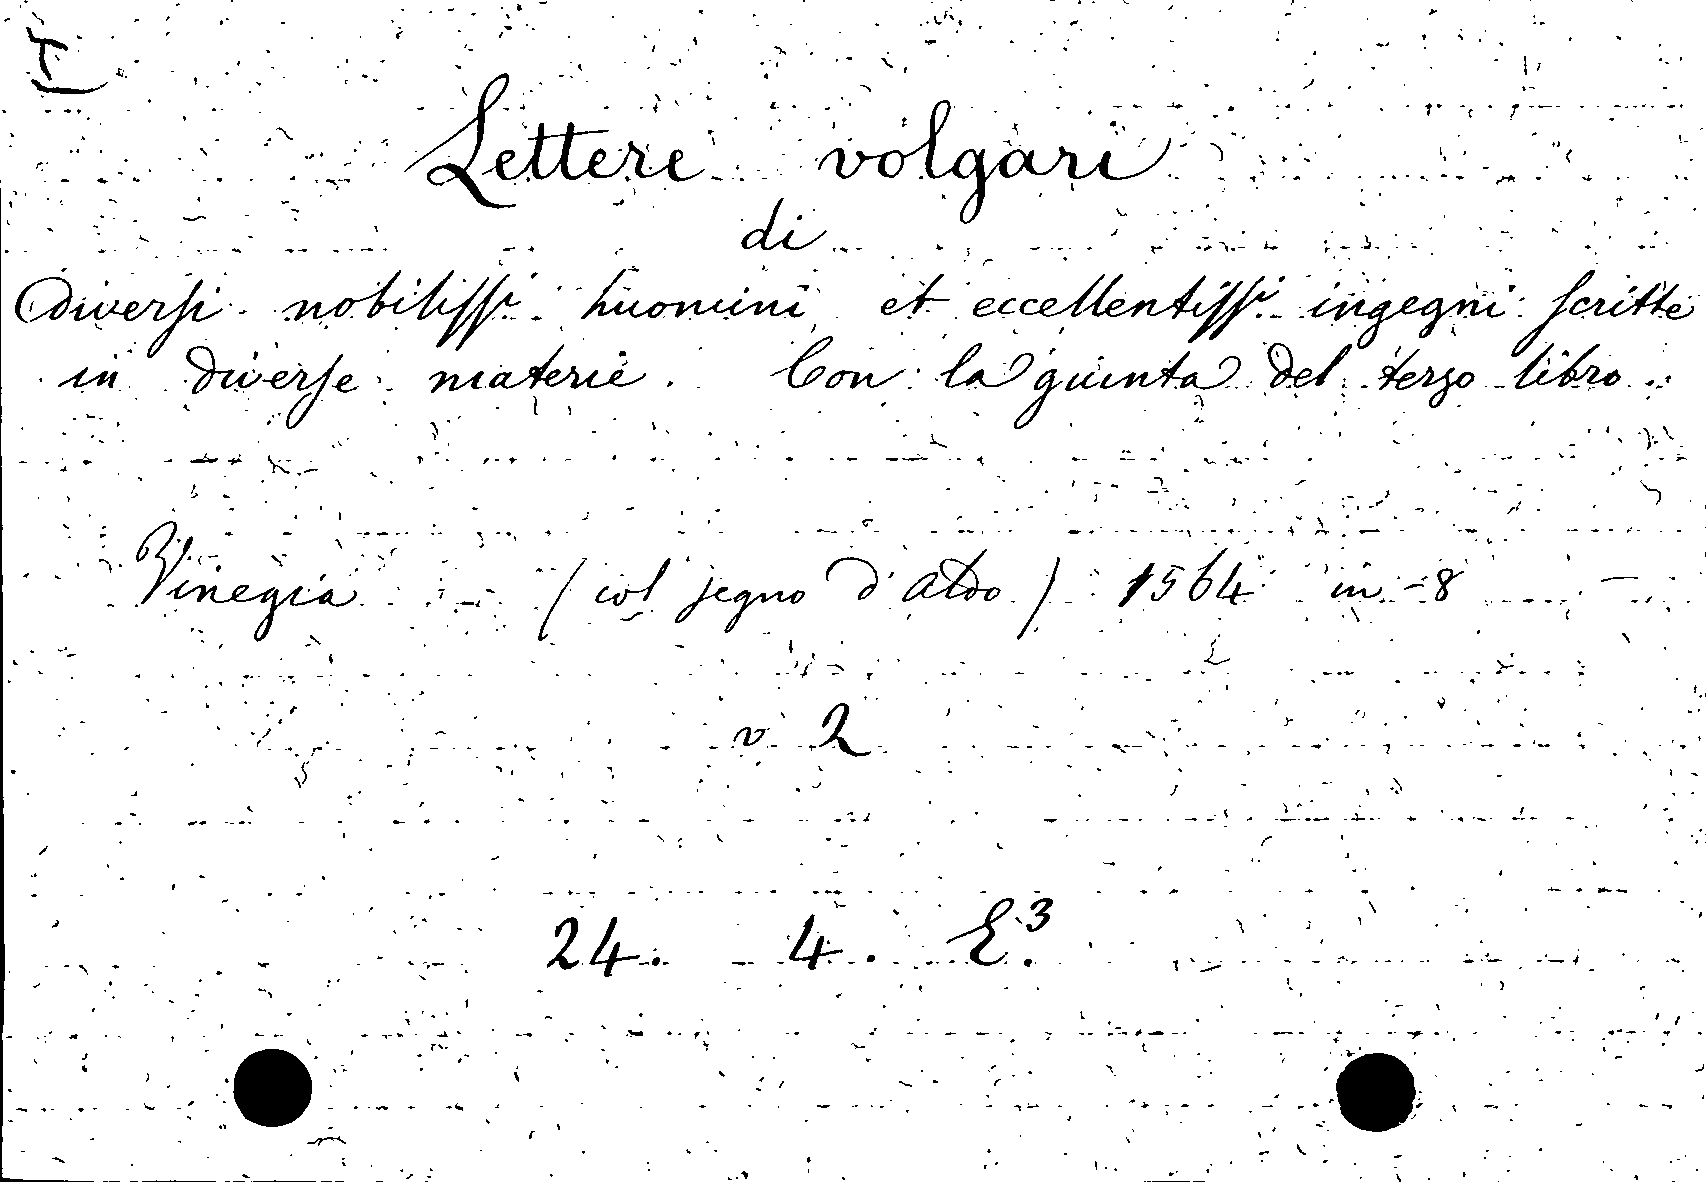 Lettere volgari
di
diversi nobilissi huomini et eccellentissi ingegni scritte
in diverse materie. Con la giunta del terzo libro.
Vinegia (col segno d'Aldo) 1564 in-8
v 2
24. 4. E.³